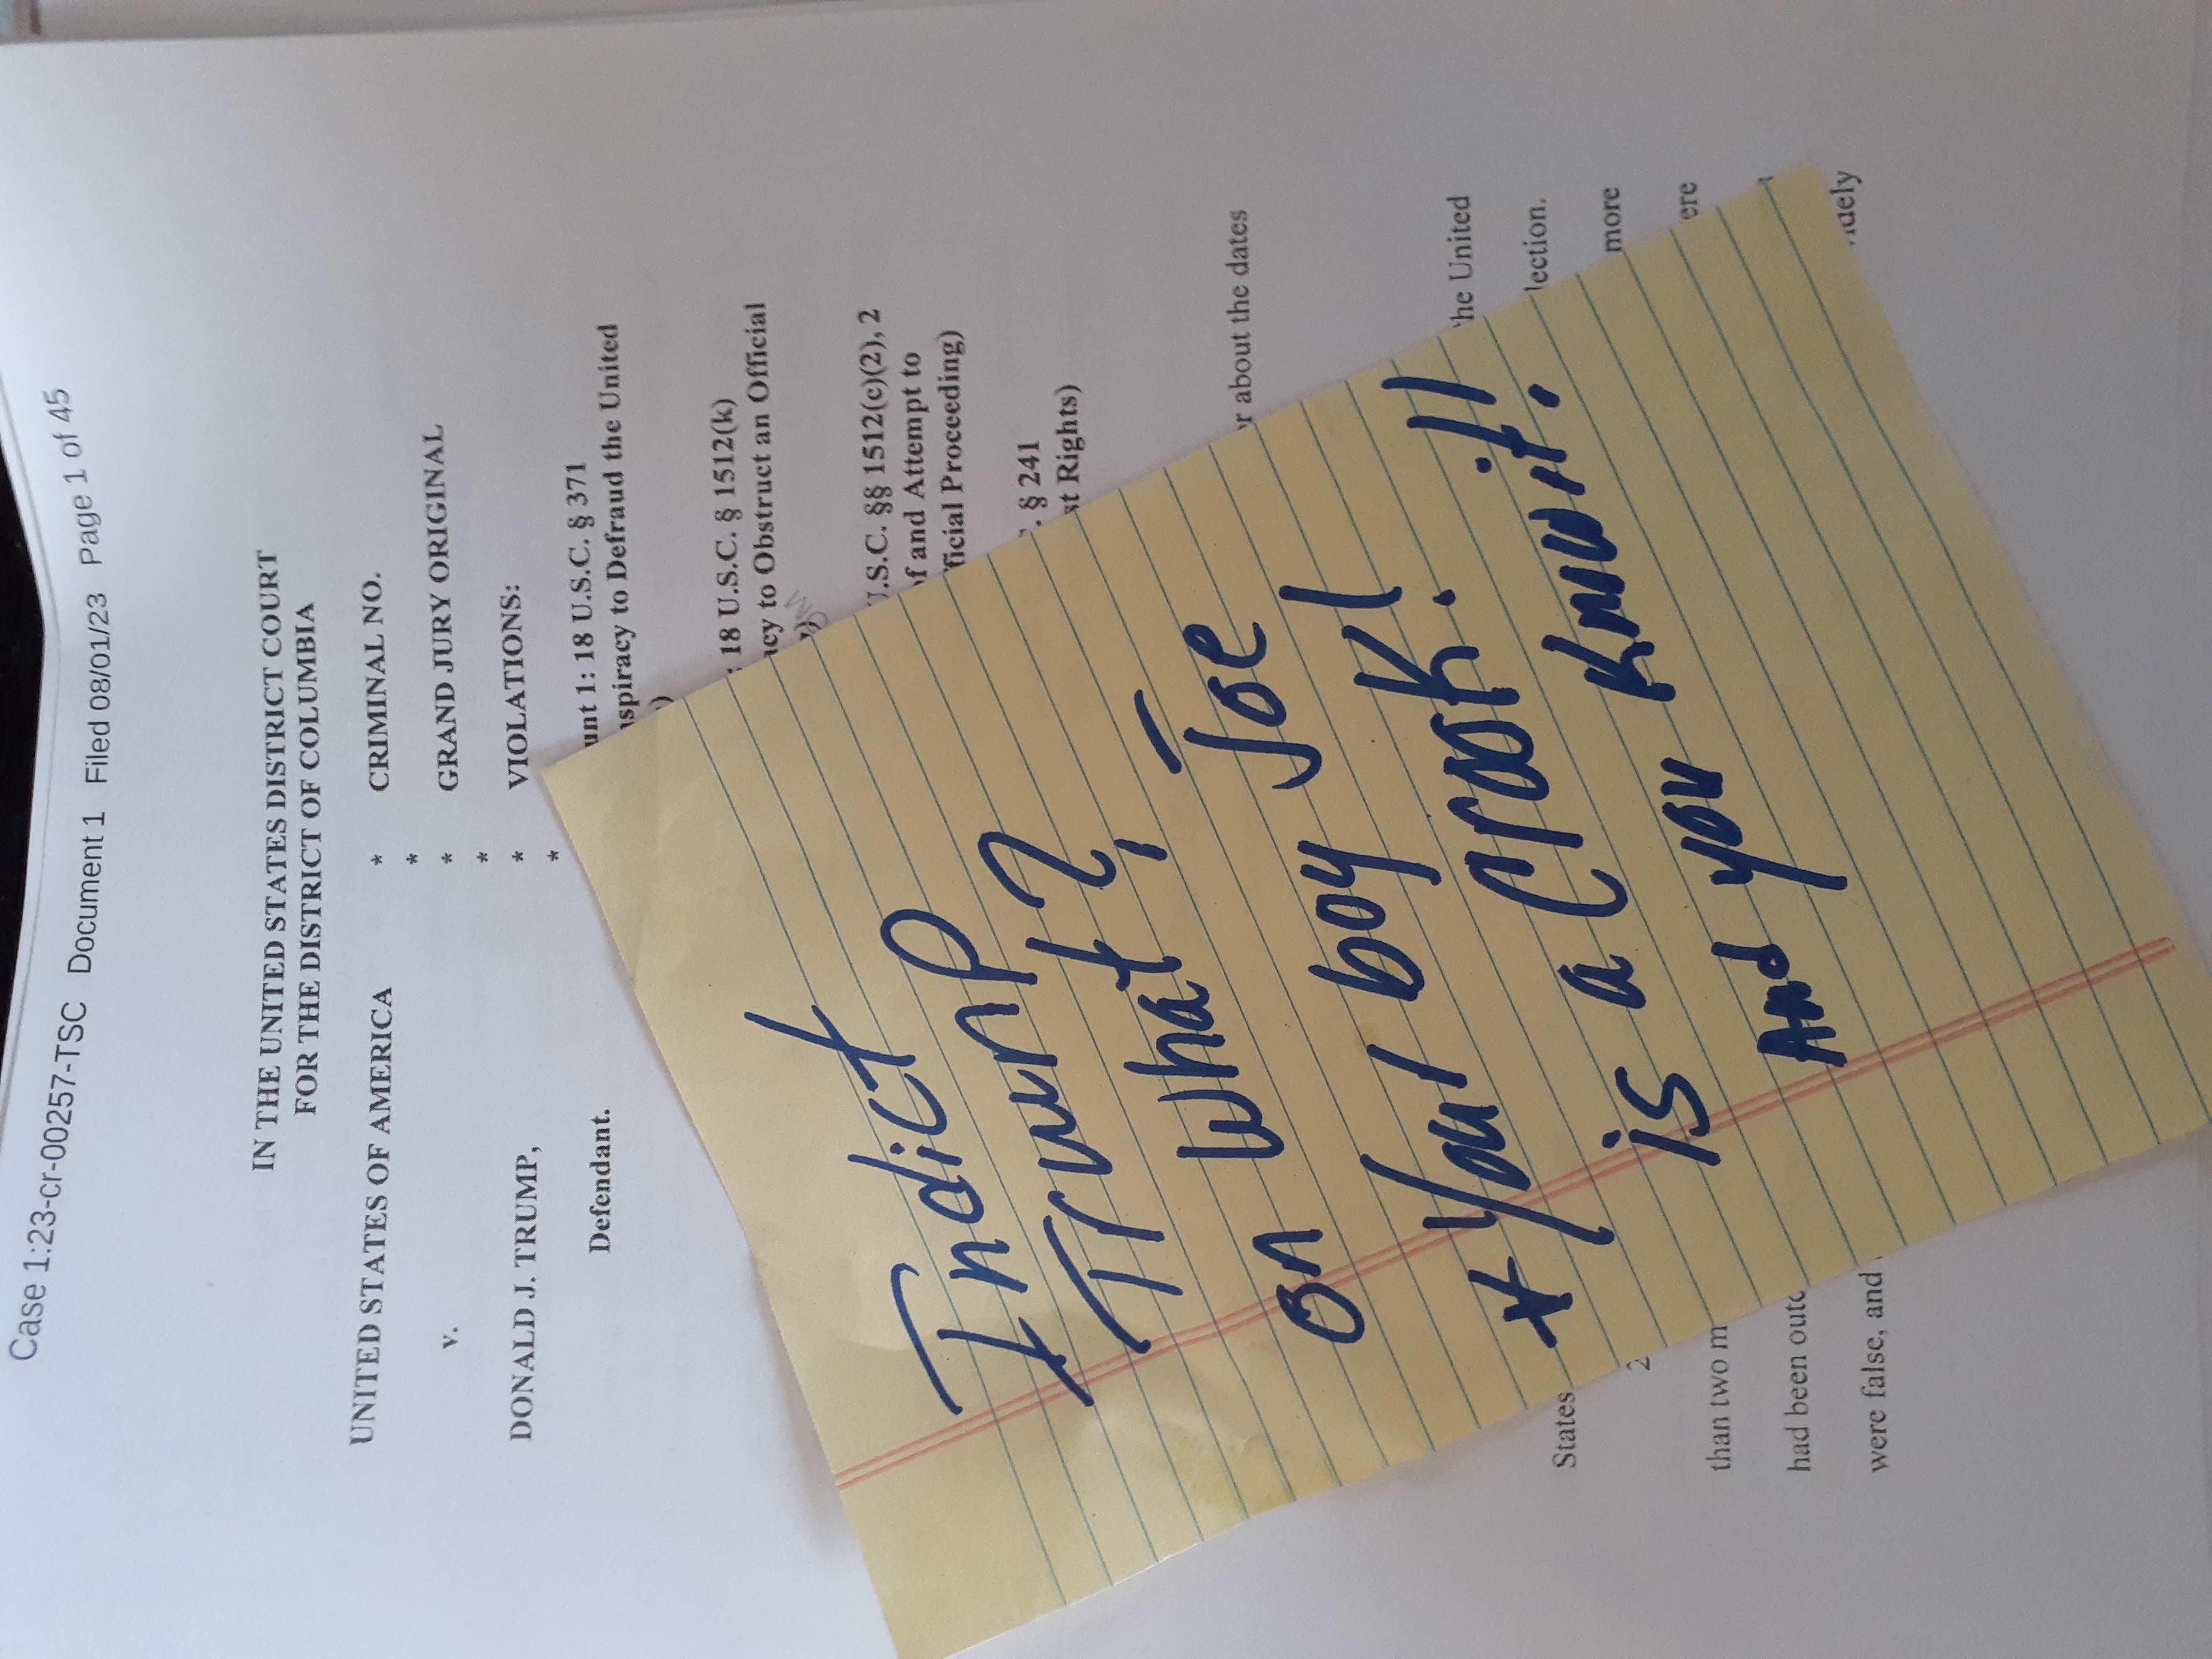 Case 1:23-cr-00257-TSC Document 1 Filed 08/01/23 Page 1 of 45
IN THE UNITED STATES DISTRICT COURT
FOR THE DISTRICT OF COLUMBIA
UNITED STATES OF AMERICA * CRIMINAL NO.
*
v. * GRAND JURY ORIGINAL
*
DONALD J. TRUMP, * VIOLATIONS:
*
Defendant. unt 1: 18 U.S.C. § 371
spiracy to Defraud the United
)
: 18 U.S.C. § 1512(k)
acy to Obstruct an Official
)
U.S.C. §§ 1512(c)(2), 2
of and Attempt to
fficial Proceeding)
. § 241
st Rights)
r about the dates
he United
States lection.
2 more
than two m ere
had been outc
were false, and idely
Indict
Trump?
on what?!
* Your boy Joe
is a Crook!
And you know it!!